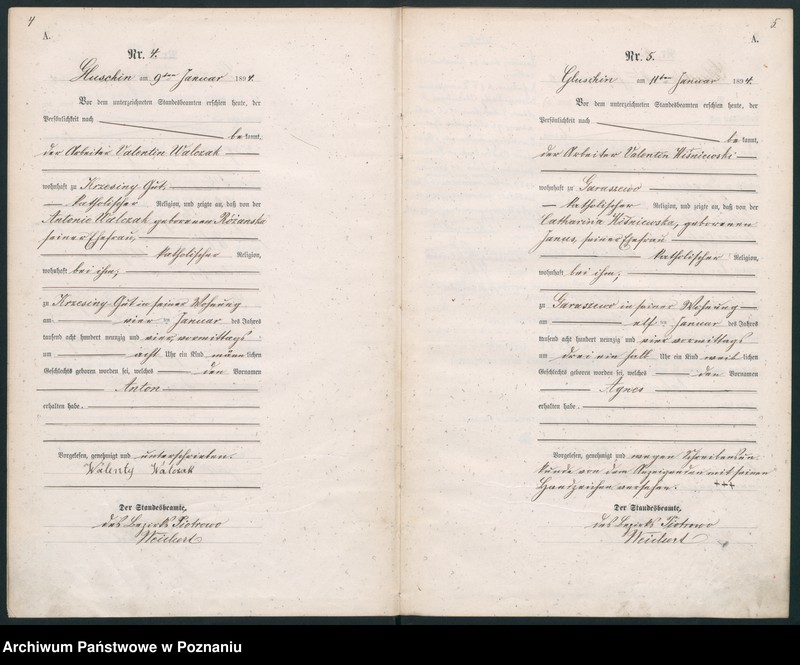 4
A.
Nr. 4.
Gluschin am 9ten Januar 1894.
Vor dem unterzeichneten Standesbeamten erschien heute, der
Persönlichkeit nach
bekannt,
der Arbeiter Valentin Walczak
wohnhaft zu Krzesiny Gut,
katholischer Religion, und zeigte an, daß von der
Antonie Walczak geborenen Różanska
seiner Ehefrau,
katholischer Religion,
wohnhaft bei ihm;
zu Krzesiny Gut in seiner Wohnung
am vier ten Januar des Jahres
tausend acht hundert neunzig und vier, vormittags
um acht Uhr ein Kind männlichen
Geschlechts geboren worden sei, welches den Vornamen
Anton
erhalten habe.
Vorgelesen, genehmigt und unterschrieben.
Walenty Walczak
Der Standesbeamte,
des Bezirks Piotrowo
Weichert
5.
A.
Nr. 5.
Gluschin am 11ten Januar 1894.
Vor dem unterzeichneten Standesbeamten erschien heute, der
Persönlichkeit nach
bekannt,
der Arbeiter Valentin Wiśniewski
wohnhaft zu Garaszewo
katholischer Religion, und zeigte an, daß von der
Catharina Wiśniewska, geborenen
Janus, seiner Ehefrau
katholischer Religion,
wohnhaft bei ihm;
zu Garaszewo in seiner Wohnung
am elf ten Januar des Jahres
tausend acht hundert neunzig und vier vormittags
um drei ein halb Uhr ein Kind weiblichen
Geschlechts geboren worden sei, welches den Vornamen
Agnes
erhalten habe.
Vorgelesen, genehmigt und wegen Schreibensun
kunde von dem Anzeigenden mit seinen
Handzeichen versehen. +++
Der Standesbeamte,
des Bezirks Piotrowo
Weichert
Archiwum Państwowe w Poznaniu